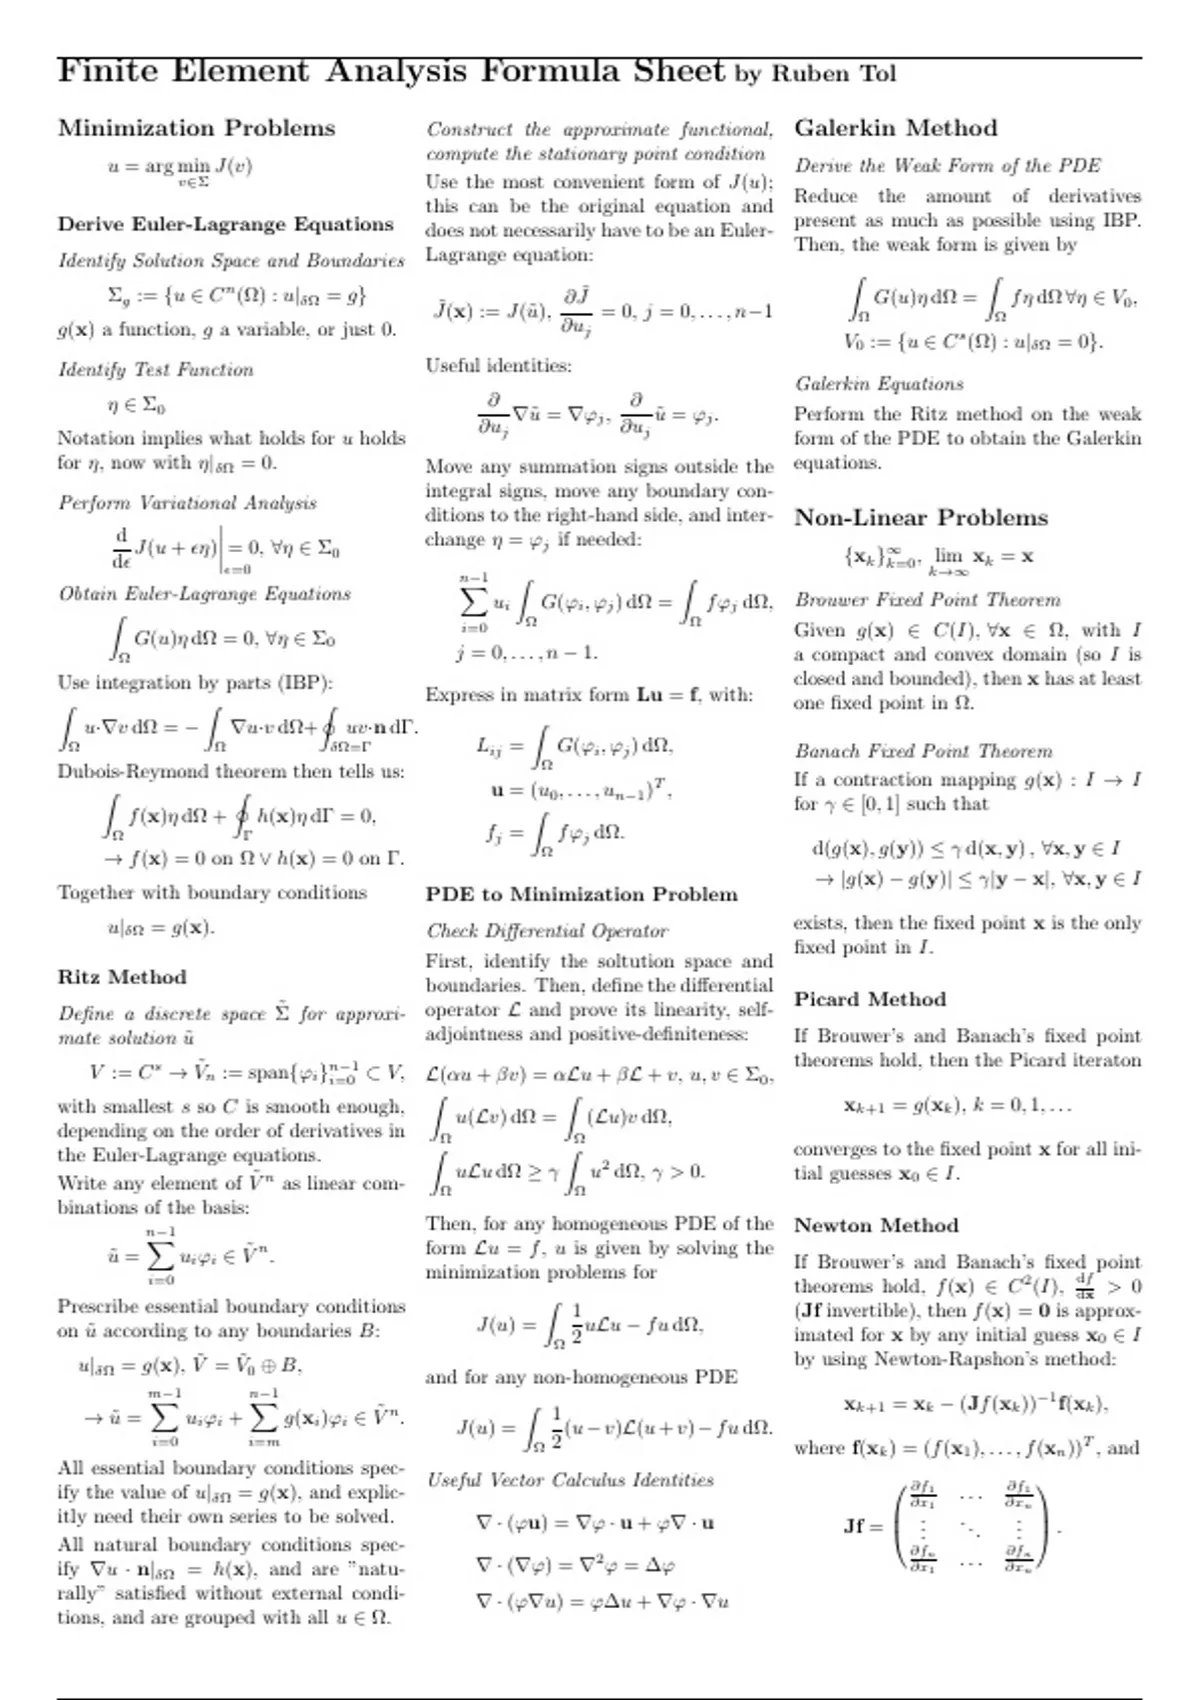 Finite Element Analysis Formula Sheet by Ruben Tol
Minimization Problems
u = arg min J(v)
v∈Σ
Derive Euler-Lagrange Equations
Identify Solution Space and Boundaries
Σg := {u ∈ Cⁿ(Ω) : u|δΩ = g}
g(x) a function, g a variable, or just 0.
Identify Test Function
η ∈ Σ₀
Notation implies what holds for u holds
for η, now with η|δΩ = 0.
Perform Variational Analysis
d/dϵ J(u + ϵη)|ϵ=0 = 0, ∀η ∈ Σ₀
Obtain Euler-Lagrange Equations
∫Ω G(u)η dΩ = 0, ∀η ∈ Σ₀
Use integration by parts (IBP):
∫Ω u·∇v dΩ = − ∫Ω ∇u·v dΩ + ∮δΩ=Γ uv·n dΓ.
Dubois-Reymond theorem then tells us:
∫Ω f(x)η dΩ + ∮Γ h(x)η dΓ = 0,
→ f(x) = 0 on Ω ∨ h(x) = 0 on Γ.
Together with boundary conditions
u|δΩ = g(x).
Ritz Method
Define a discrete space Σ̃ for approxi-
mate solution ũ
V := Cˢ → Ṽₙ := span{φᵢ}ⁿ⁻¹ᵢ₌₀ ⊂ V,
with smallest s so C is smooth enough,
depending on the order of derivatives in
the Euler-Lagrange equations.
Write any element of Ṽⁿ as linear com-
binations of the basis:
ũ = ∑ⁿ⁻¹ᵢ₌₀ uᵢφᵢ ∈ Ṽⁿ.
Prescribe essential boundary conditions
on ũ according to any boundaries B:
u|δΩ = g(x), Ṽ = Ṽ₀ ⊕ B,
→ ũ = ∑ᵐ⁻¹ᵢ₌₀ uᵢφᵢ + ∑ⁿ⁻¹ᵢ₌ₘ g(xᵢ)φᵢ ∈ Ṽⁿ.
All essential boundary conditions spec-
ify the value of u|δΩ = g(x), and explic-
itly need their own series to be solved.
All natural boundary conditions spec-
ify ∇u · n|δΩ = h(x), and are ”natu-
rally” satisfied without external condi-
tions, and are grouped with all u ∈ Ω.
Construct the approximate functional,
compute the stationary point condition
Use the most convenient form of J(u);
this can be the original equation and
does not necessarily have to be an Euler-
Lagrange equation:
J̃(x) := J(ũ), ∂J̃/∂uⱼ = 0, j = 0, . . . , n−1
Useful identities:
∂/∂uⱼ ∇ũ = ∇φⱼ, ∂/∂uⱼ ũ = φⱼ.
Move any summation signs outside the
integral signs, move any boundary con-
ditions to the right-hand side, and inter-
change η = φⱼ if needed:
∑ⁿ⁻¹ᵢ₌₀ uᵢ ∫Ω G(φᵢ, φⱼ) dΩ = ∫Ω fφⱼ dΩ,
j = 0, . . . , n − 1.
Express in matrix form Lu = f, with:
Lᵢⱼ = ∫Ω G(φᵢ, φⱼ) dΩ,
u = (u₀, . . . , uₙ₋₁)ᵀ,
fⱼ = ∫Ω fφⱼ dΩ.
PDE to Minimization Problem
Check Differential Operator
First, identify the soltution space and
boundaries. Then, define the differential
operator ℒ and prove its linearity, self-
adjointness and positive-definiteness:
ℒ(αu + βv) = αℒu + βℒ + v, u, v ∈ Σ₀,
∫Ω u(ℒv) dΩ = ∫Ω (ℒu)v dΩ,
∫Ω uℒu dΩ ≥ γ ∫Ω u² dΩ, γ > 0.
Then, for any homogeneous PDE of the
form ℒu = f, u is given by solving the
minimization problems for
J(u) = ∫Ω 1/2 uℒu − fu dΩ,
and for any non-homogeneous PDE
J(u) = ∫Ω 1/2 (u − v)ℒ(u + v) − fu dΩ.
Useful Vector Calculus Identities
∇ · (φu) = ∇φ · u + φ∇ · u
∇ · (∇φ) = ∇²φ = Δφ
∇ · (φ∇u) = φΔu + ∇φ · ∇u
Galerkin Method
Derive the Weak Form of the PDE
Reduce the amount of derivatives
present as much as possible using IBP.
Then, the weak form is given by
∫Ω G(u)η dΩ = ∫Ω fη dΩ ∀η ∈ V₀,
V₀ := {u ∈ Cˢ(Ω) : u|δΩ = 0}.
Galerkin Equations
Perform the Ritz method on the weak
form of the PDE to obtain the Galerkin
equations.
Non-Linear Problems
{xₖ}∞ₖ₌₀, lim xₖ = x
k→∞
Brouwer Fixed Point Theorem
Given g(x) ∈ C(I), ∀x ∈ Ω, with I
a compact and convex domain (so I is
closed and bounded), then x has at least
one fixed point in Ω.
Banach Fixed Point Theorem
If a contraction mapping g(x) : I → I
for γ ∈ [0, 1] such that
d(g(x), g(y)) ≤ γ d(x, y) , ∀x, y ∈ I
→ |g(x) − g(y)| ≤ γ|y − x|, ∀x, y ∈ I
exists, then the fixed point x is the only
fixed point in I.
Picard Method
If Brouwer's and Banach's fixed point
theorems hold, then the Picard iteraton
xₖ₊₁ = g(xₖ), k = 0, 1, . . .
converges to the fixed point x for all ini-
tial guesses x₀ ∈ I.
Newton Method
If Brouwer's and Banach's fixed point
theorems hold, f(x) ∈ C²(I), df/dx > 0
(Jf invertible), then f(x) = 0 is approx-
imated for x by any initial guess x₀ ∈ I
by using Newton-Rapshon's method:
xₖ₊₁ = xₖ − (Jf(xₖ))⁻¹f(xₖ),
where f(xₖ) = (f(x₁), . . . , f(xₙ))ᵀ, and
∂f₁/∂x₁ ⋯ ∂f₁/∂xₙ
Jf = ( ⋮ ⋱ ⋮ ) .
∂fₙ/∂x₁ ⋯ ∂fₙ/∂xₙ